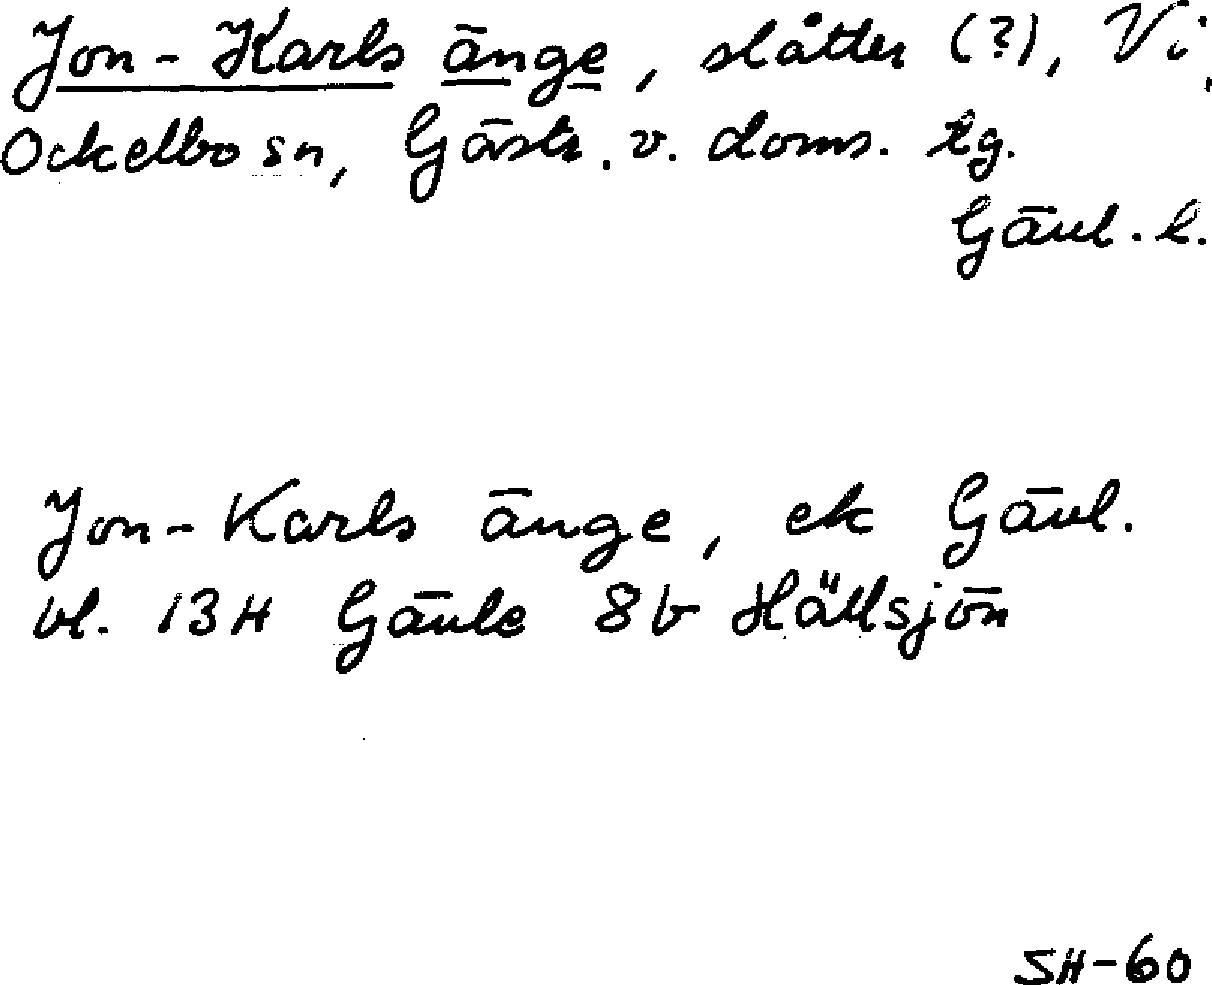 Jon-Karls änge, slåtter (?), Vi,
Ockelbo sn, Gästr. v. doms. tg.
Gävl. l.
Jon-Karls änge, ek Gävl.
bl. 13H Gävle 8b Hällsjön
SH-60